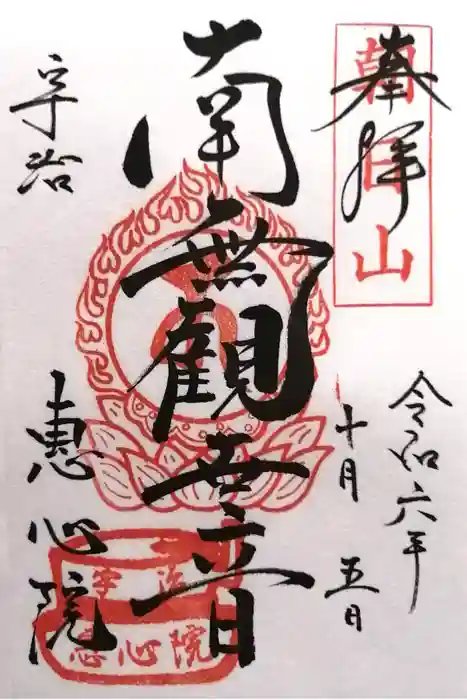 奉拝
朝日山
令和六年
十月五日
南無觀世音
宇治
恵心院
宇治
恵心院